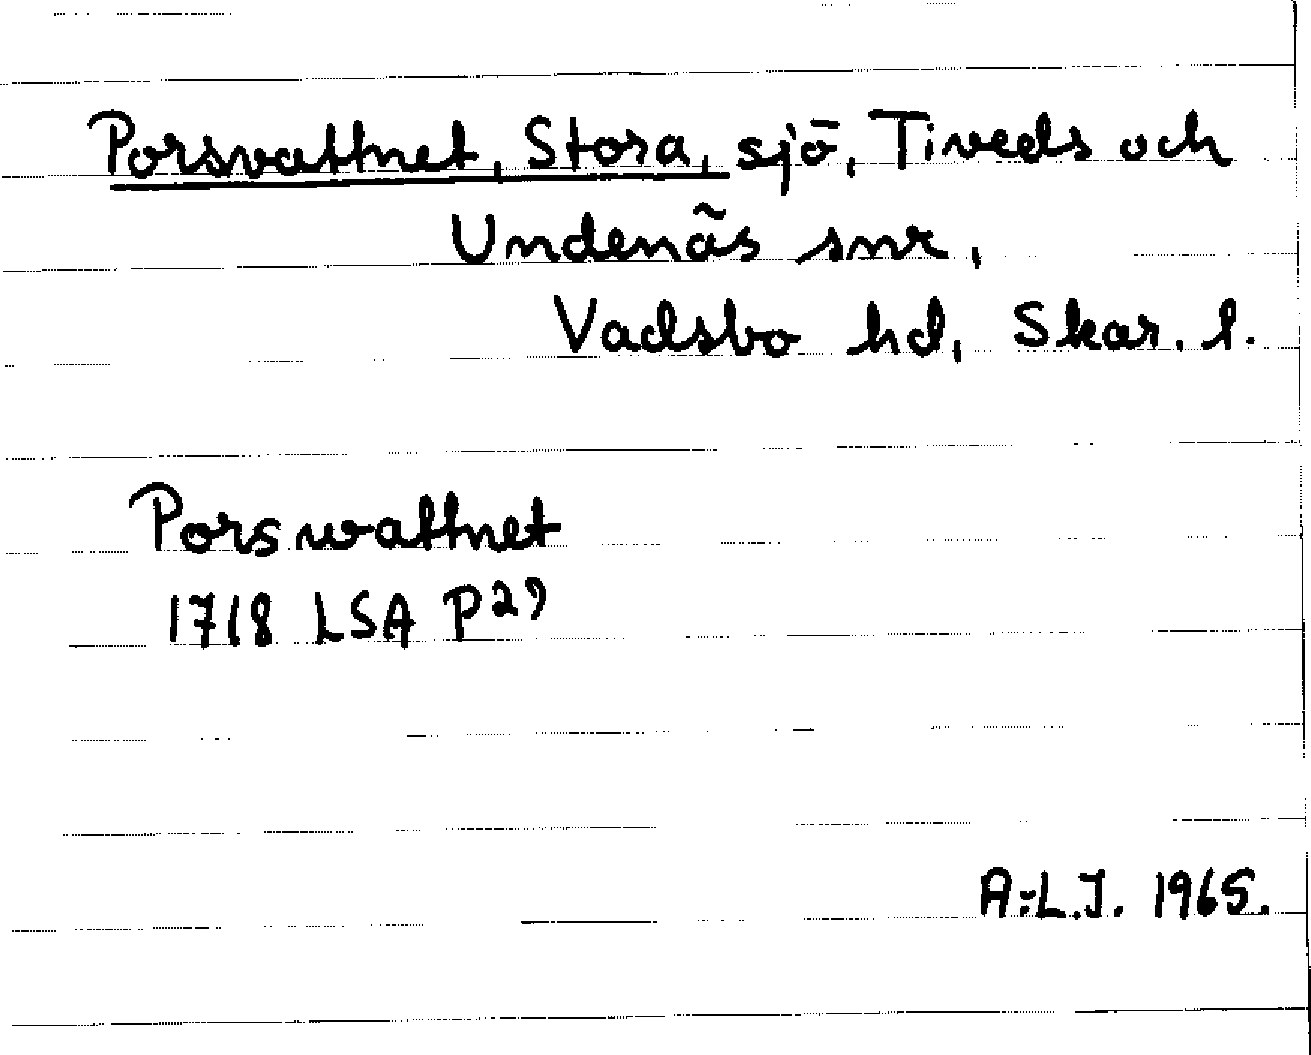 Porsvattnet, Stora, sjö, Tiveds och
Undenäs snr,
Vadsbo hd, Skar. l.
Porswattnet
1718 LSA P 29
A-L.J. 1965.